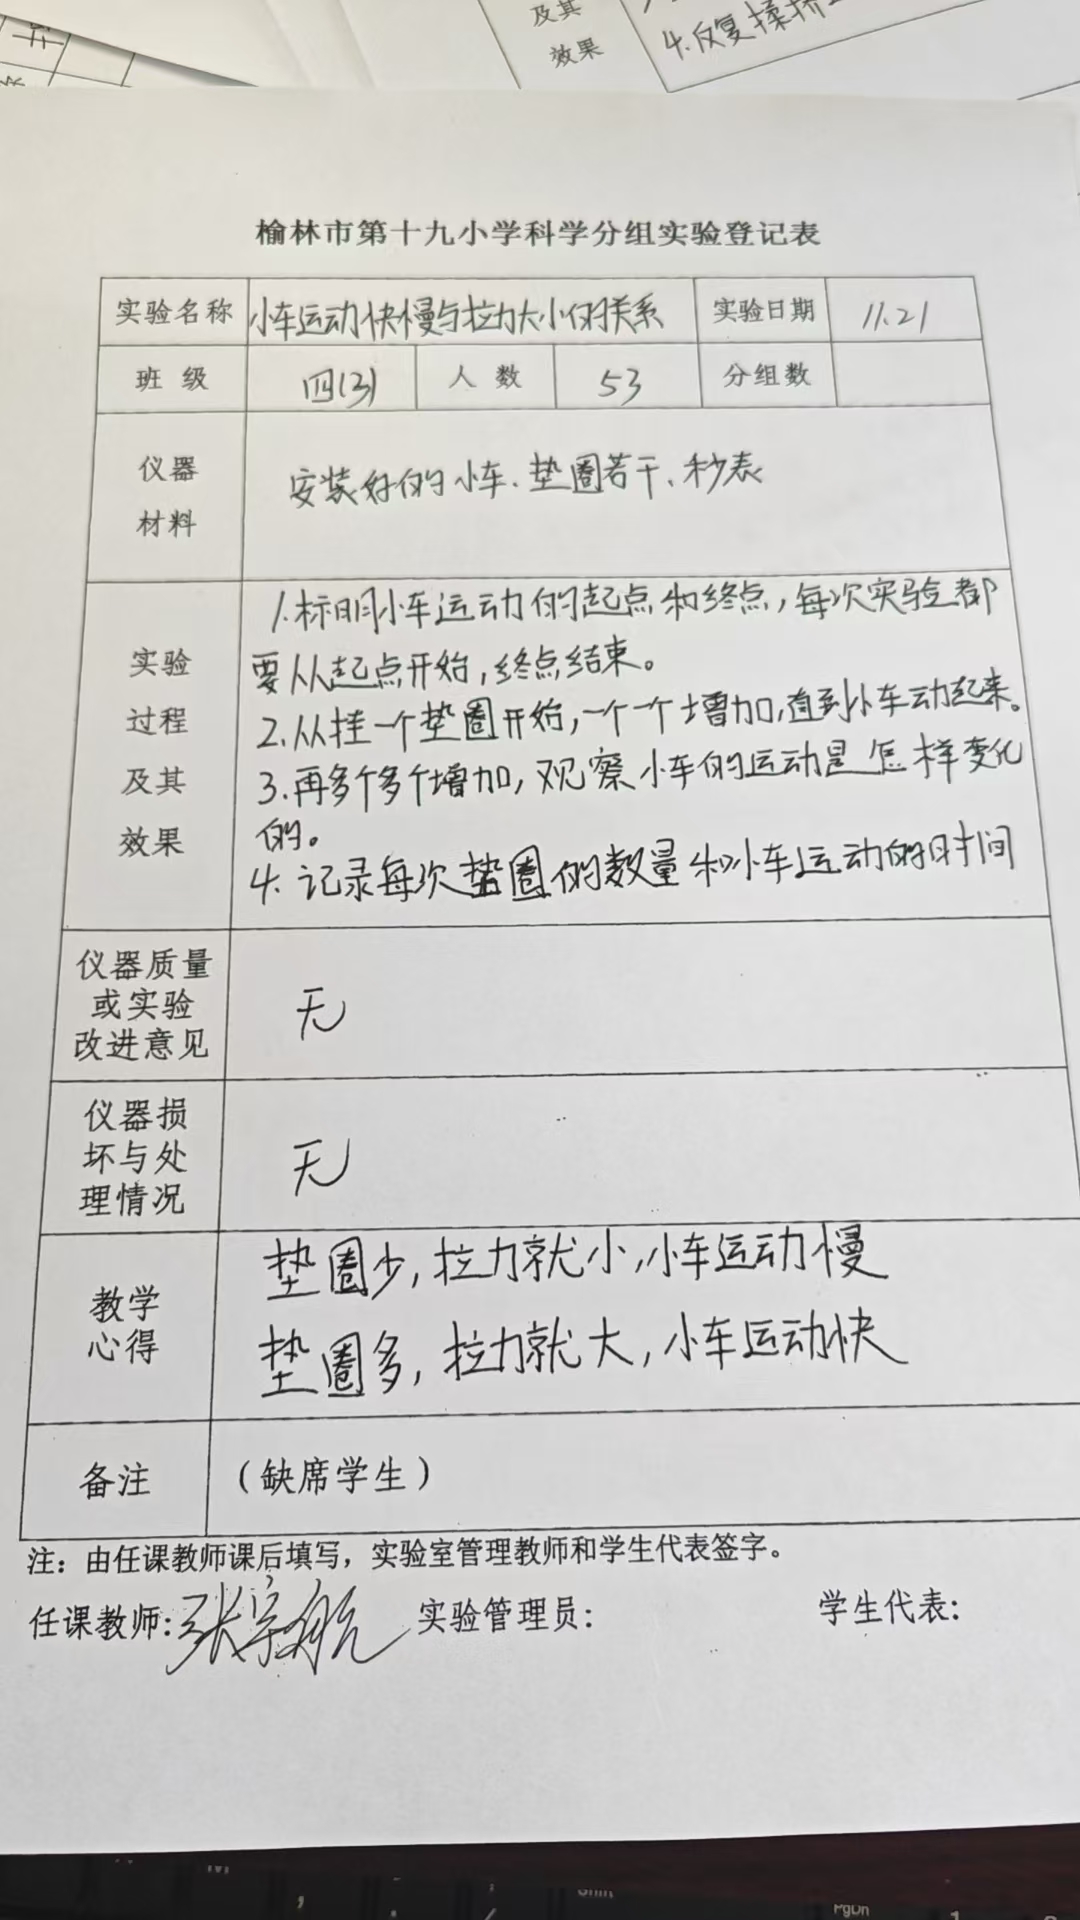 及其
效果
4.反复揉挤
榆林市第十九小学科学分组实验登记表
实验名称 小车运动快慢与拉力大小的关系 实验日期 11.21
班 级 四(3) 人 数 53 分组数
仪器
材料
安装好的小车、垫圈若干、秒表
实验
过程
及其
效果
1.标明小车运动的起点和终点,每次实验都
要从起点开始,终点结束。
2.从挂一个垫圈开始,一个一个增加,直到小车动起来。
3.再多个多个增加,观察小车的运动是怎样变化
的。
4.记录每次垫圈的数量和小车运动的时间
仪器质量
或实验
改进意见
无
仪器损
坏与处
理情况
无
教学
心得
垫圈少,拉力就小,小车运动慢
垫圈多,拉力就大,小车运动快
备注 (缺席学生)
注:由任课教师课后填写,实验室管理教师和学生代表签字。
任课教师:张宇航 实验管理员: 学生代表:
M
Shift
PgDn
1